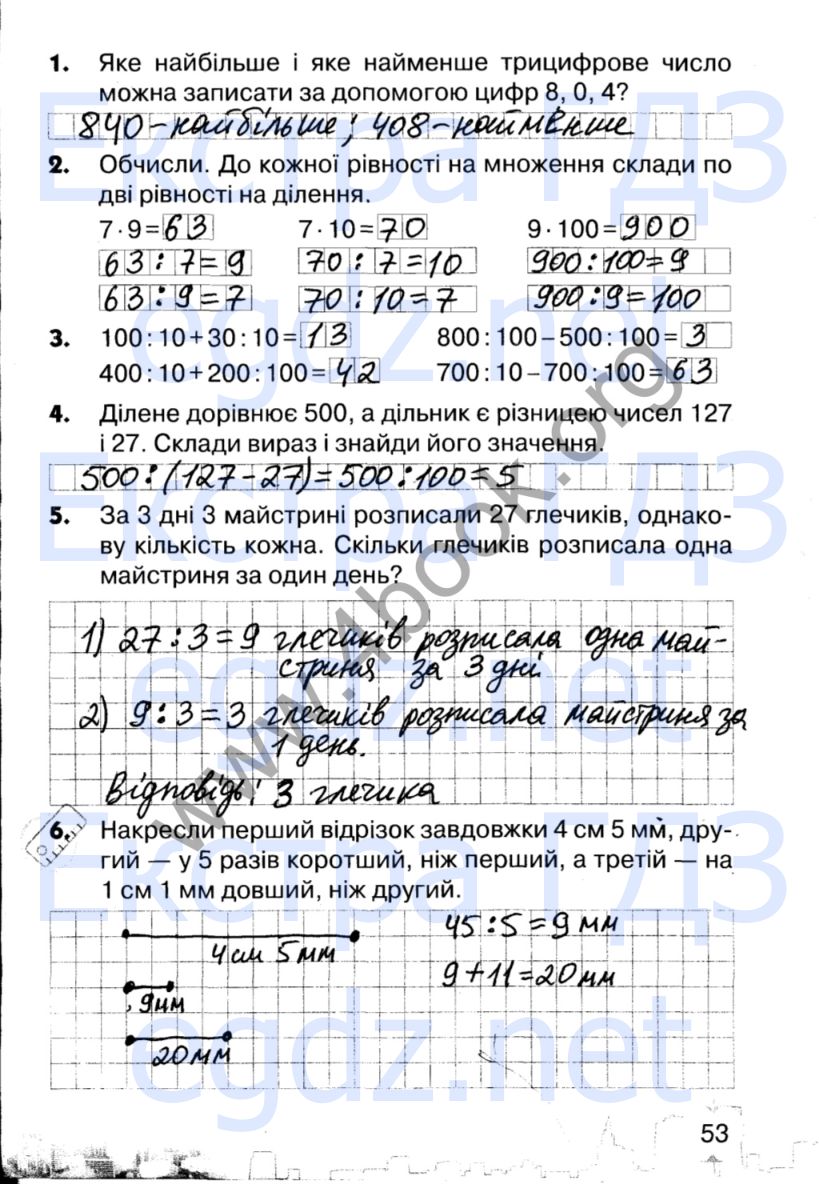 1. Яке найбільше і яке найменше трицифрове число
можна записати за допомогою цифр 8, 0, 4?
840 – найбільше; 408 – найменше
2. Обчисли. До кожної рівності на множення склади по
дві рівності на ділення.
7 · 9 = 63 7 · 10 = 70 9 · 100 = 900
63 : 7 = 9 70 : 7 = 10 900 : 100 = 9
63 : 9 = 7 70 : 10 = 7 900 : 9 = 100
3. 100 : 10 + 30 : 10 = 13 800 : 100 – 500 : 100 = 3
400 : 10 + 200 : 100 = 42 700 : 10 – 700 : 100 = 63
4. Ділене дорівнює 500, а дільник є різницею чисел 127
і 27. Склади вираз і знайди його значення.
500 : (127 – 27) = 500 : 100 = 5
5. За 3 дні 3 майстрині розписали 27 глечиків, однако-
ву кількість кожна. Скільки глечиків розписала одна
майстриня за один день?
1) 27 : 3 = 9 глечиків розписала одна май-
стриня за 3 дні
2) 9 : 3 = 3 глечиків розписала майстриня за
1 день.
Відповідь: 3 глечика
6. Накресли перший відрізок завдовжки 4 см 5 мм, дру-
гий — у 5 разів коротший, ніж перший, а третій — на
1 см 1 мм довший, ніж другий.
45 : 5 = 9 мм
4 см 5 мм
9 + 11 = 20 мм
9 мм
20 мм
53
Екстра ГДЗ
egdz.net
Екстра ГДЗ
egdz.net
Екстра ГДЗ
egdz.net
www.4book.org